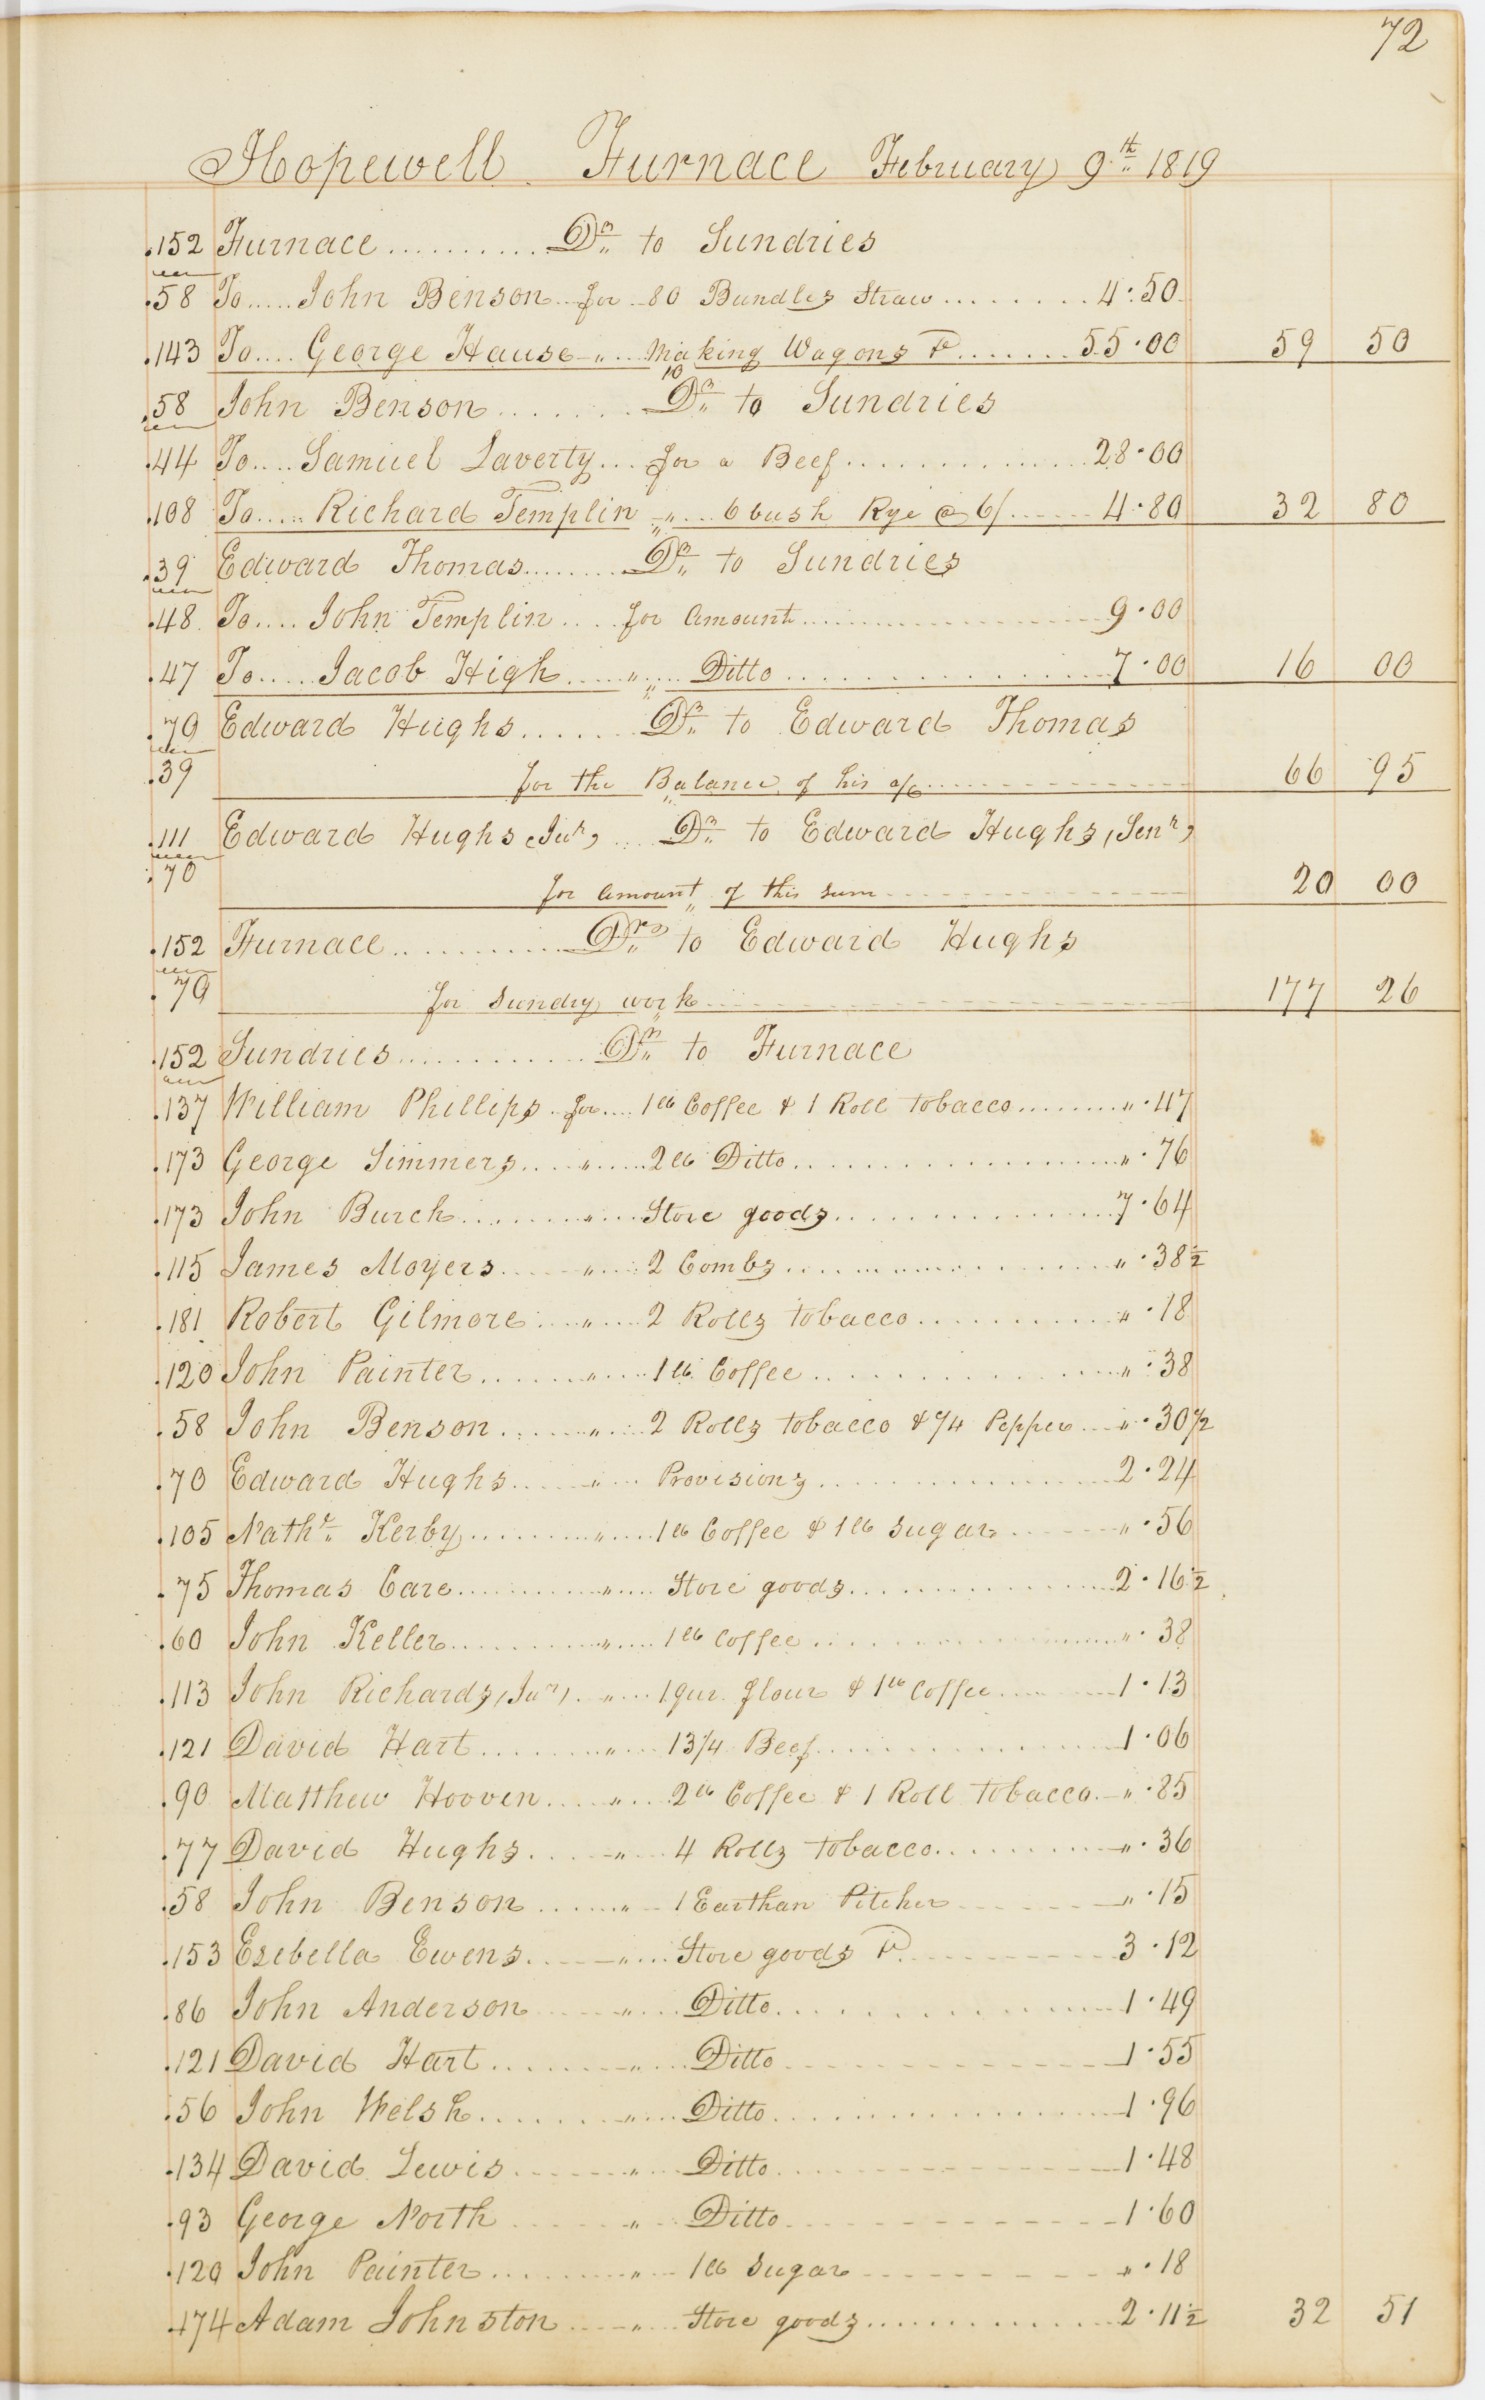 72
Hopewell Furnace February 9th 1819
152 Furnace .......... Dr to Sundries
58 To ..... John Benson for 80 Bundles Straw ........ 4.50
143 To .... George Hause " ... Making Wagons &c ....... 55.00 59 50
10
58 John Benson ....... Dr to Sundries
44 To .... Samuel Laverty ... for a Beef .............. 28.00
108 To ..... Richard Templin " ... 6 bush Rye @ 6/ ...... 4.80 32 80
39 Edward Thomas ........ Dr to Sundries
48 To .... John Templin .... for Amount .................. 9.00
47 To ..... Jacob High ..... " ..... Ditto ................ 7.00 16 00
79 Edward Hughs ...... Dr to Edward Thomas
39 for the Balance of his a/c ............ 66 95
111 Edward Hughs (Junr) .... Dr to Edward Hughs (Senr)
70 for amount of this sum ............ 20 00
152 Furnace ............ Drs to Edward Hughs
70 for Sundry work ............ 177 26
152 Sundries ............ Dr to Furnace
137 William Phillips for .... 1 lb Coffee & 1 Roll tobacco ........ " .47
173 George Simmers .... " ..... 2 lb Ditto ................... " .76
173 John Burch ........ " .... Store goods ................ 7.64
115 James Moyers ..... " .... 2 Combs ................ " .38½
181 Robert Gilmore .... " .... 2 Rolls tobacco ........... " .18
120 John Painter ....... " .... 1 lb Coffee .............. " .38
58 John Benson ...... " .... 2 Rolls tobacco & ¼ Pepper .... " .30½
70 Edward Hughs ..... " .... Provisions ................ 2.24
105 Nathl Kerby ......... " .... 1 lb Coffee & 1 lb Sugar ....... " .56
75 Thomas Care .......... " .... Store goods .............. 2.16½
60 John Keller .......... " .... 1 lb Coffee ................ " .38
113 John Richards (Junr) . " .... 1 qur. flour & 1 lb Coffee ........ 1.13
121 David Hart ........ " .... 13¼ Beef ................ 1.06
90 Matthew Hooven .... " .... 2 lb Coffee & 1 Roll tobacco .. " .85
77 David Hughs .... " .... 4 Rolls tobacco .......... " .36
58 John Benson ...... " .. 1 Earthan Pitcher ........ " .15
153 Esebella Ewens ..... " ... Store goods &c ......... 3.12
86 John Anderson ..... " .... Ditto ............... 1.49
121 David Hart ......... " .... Ditto .............. 1.55
56 John Welsh ........ " .... Ditto ................ 1.96
134 David Lewis ....... " .... Ditto ................ 1.48
93 George North ....... " .. Ditto .............. 1.60
120 John Painter ........ " ... 1 lb Sugar .......... " .18
174 Adam Johnston ..... " .... Store goods .............. 2.11½ 32 51